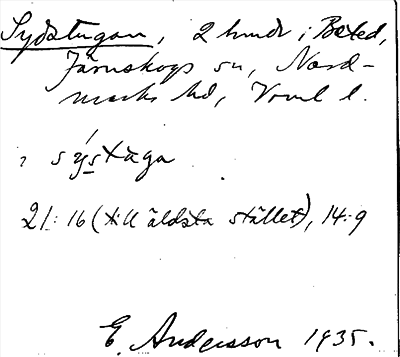 Sydstugan, 2 hmdr i Bøted,
Järnskogs sn, Nord-
marks hd, Vrml l.
sýstùga
21: 16 (till äldsta stället), 14:9
E. Andersson 1935.